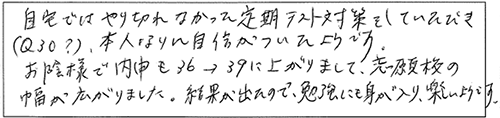 自宅では やり切れなかった定期テスト対策をしていただき
(Q30?)、本人なりに自信がついたようです。
お陰様で内申も36→39に上がりまして、志願校の
幅が広がりました。結果が出たので、勉強にも身が入り、楽しいようです。